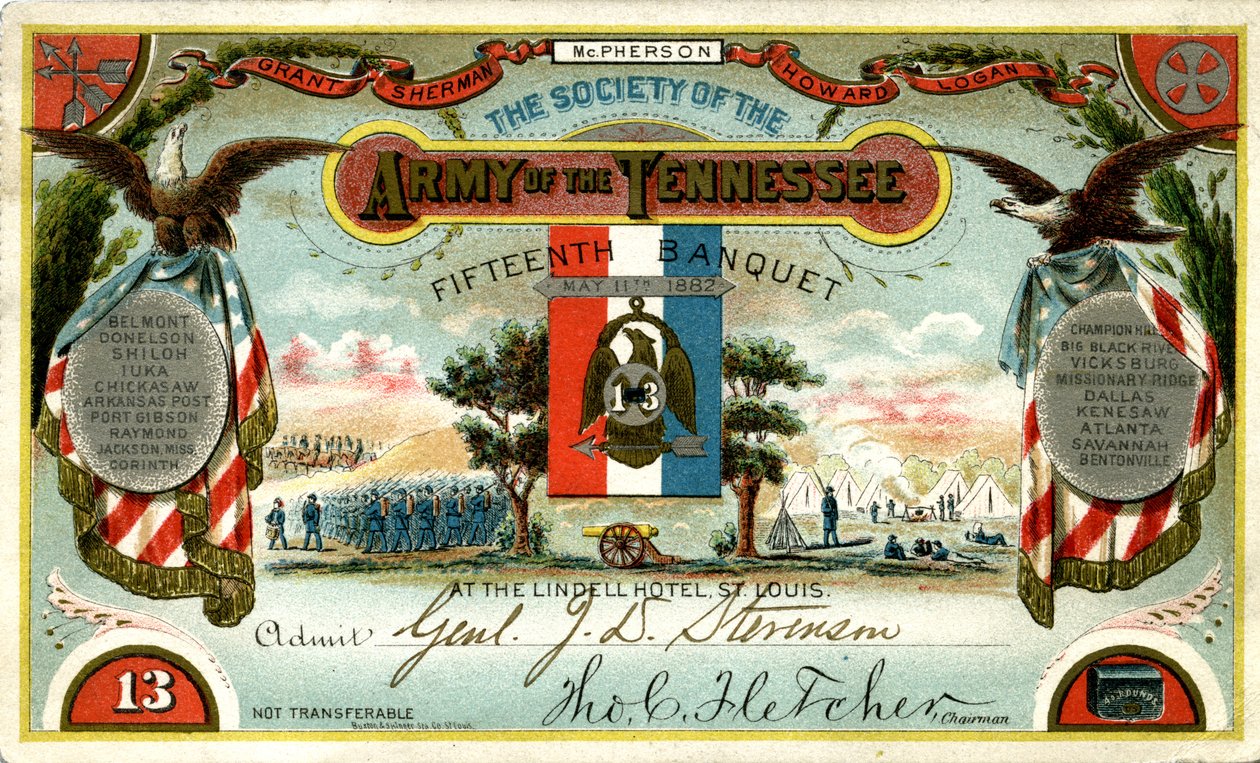 GRANT SHERMAN Mc.PHERSON HOWARD LOGAN
THE SOCIETY OF THE
ARMY OF THE TENNESSEE
FIFTEENTH BANQUET
MAY 11TH 1882
13
BELMONT
DONELSON
SHILOH
IUKA
CHICKASAW
ARKANSAS POST
PORT GIBSON
RAYMOND
JACKSON, MISS.
CORINTH
CHAMPION HILL
BIG BLACK RIVER
VICKSBURG
MISSIONARY RIDGE
DALLAS
KENESAW
ATLANTA
SAVANNAH
BENTONVILLE
AT THE LINDELL HOTEL, ST. LOUIS.
Admit Genl. J. D. Stevenson
Tho C. Fletcher, Chairman
13
NOT TRANSFERABLE
Buxton & Skinner Sta. Co. St Louis.
40 ROUNDS